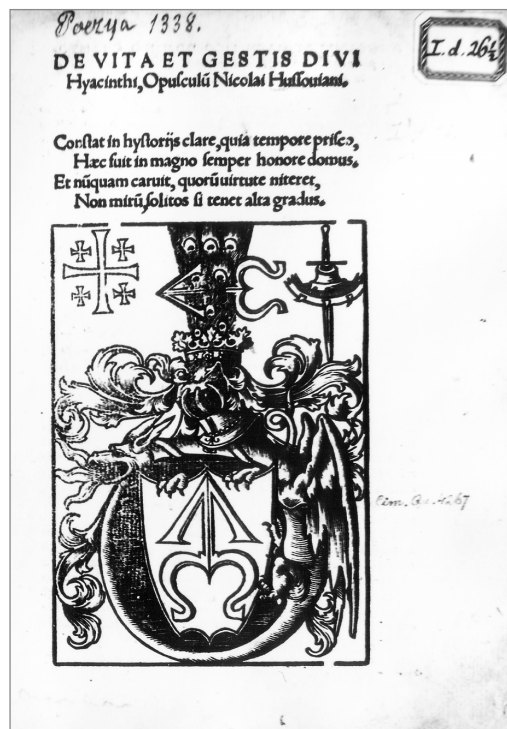 Poezya 1338.
I. d. 26½
DE VITA ET GESTIS DIVI
Hyacinthi, Opuſculū Nicolai Huſſouiani.
Conſtat in hyſtorijs clare, quia tempore priſco,
Hæc fuit in magno ſemper honore domus.
Et nūquam caruit, quorū uirtute niteret,
Non mirū, ſolitos ſi tenet alta gradus.
Cim. Qu. 4267